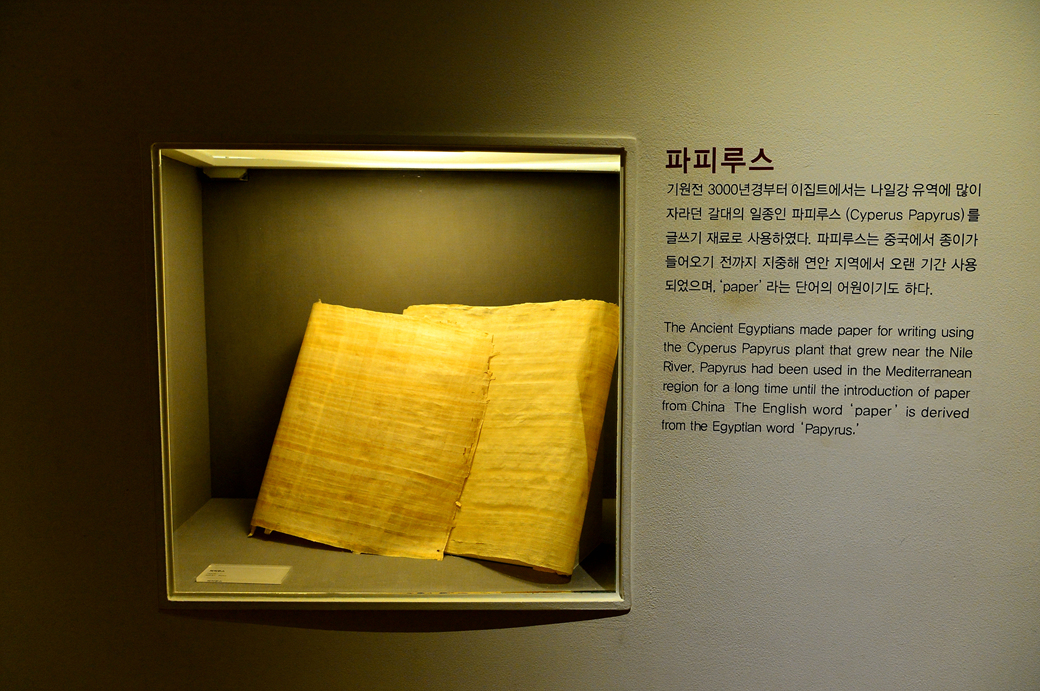 파피루스
기원전 3000년경부터 이집트에서는 나일강 유역에 많이
자라던 갈대의 일종인 파피루스 (Cyperus Papyrus)를
글쓰기 재료로 사용하였다. 파피루스는 중국에서 종이가
들어오기 전까지 지중해 연안 지역에서 오랜 기간 사용
되었으며, ‘paper’ 라는 단어의 어원이기도 하다.
The Ancient Egyptians made paper for writing using
the Cyperus Papyrus plant that grew near the Nile
River. Papyrus had been used in the Mediterranean
region for a long time until the introduction of paper
from China The English word ‘paper’ is derived
from the Egyptian word ‘Papyrus.’